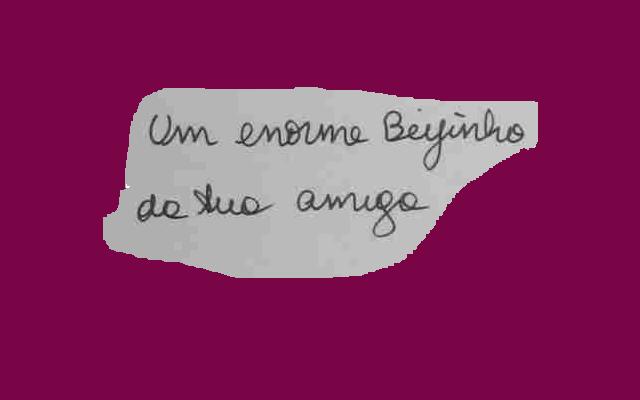 Um enorme Beijinho
da tua amiga